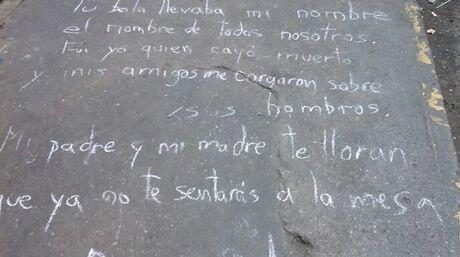 Tu bala llevaba mi nombre
el nombre de todos nosotros
Fui yo quien cayó muerto
y mis amigos me cargaron sobre
sus hombros
Mi padre y mi madre te lloran
que ya no te sentarás a la mesa